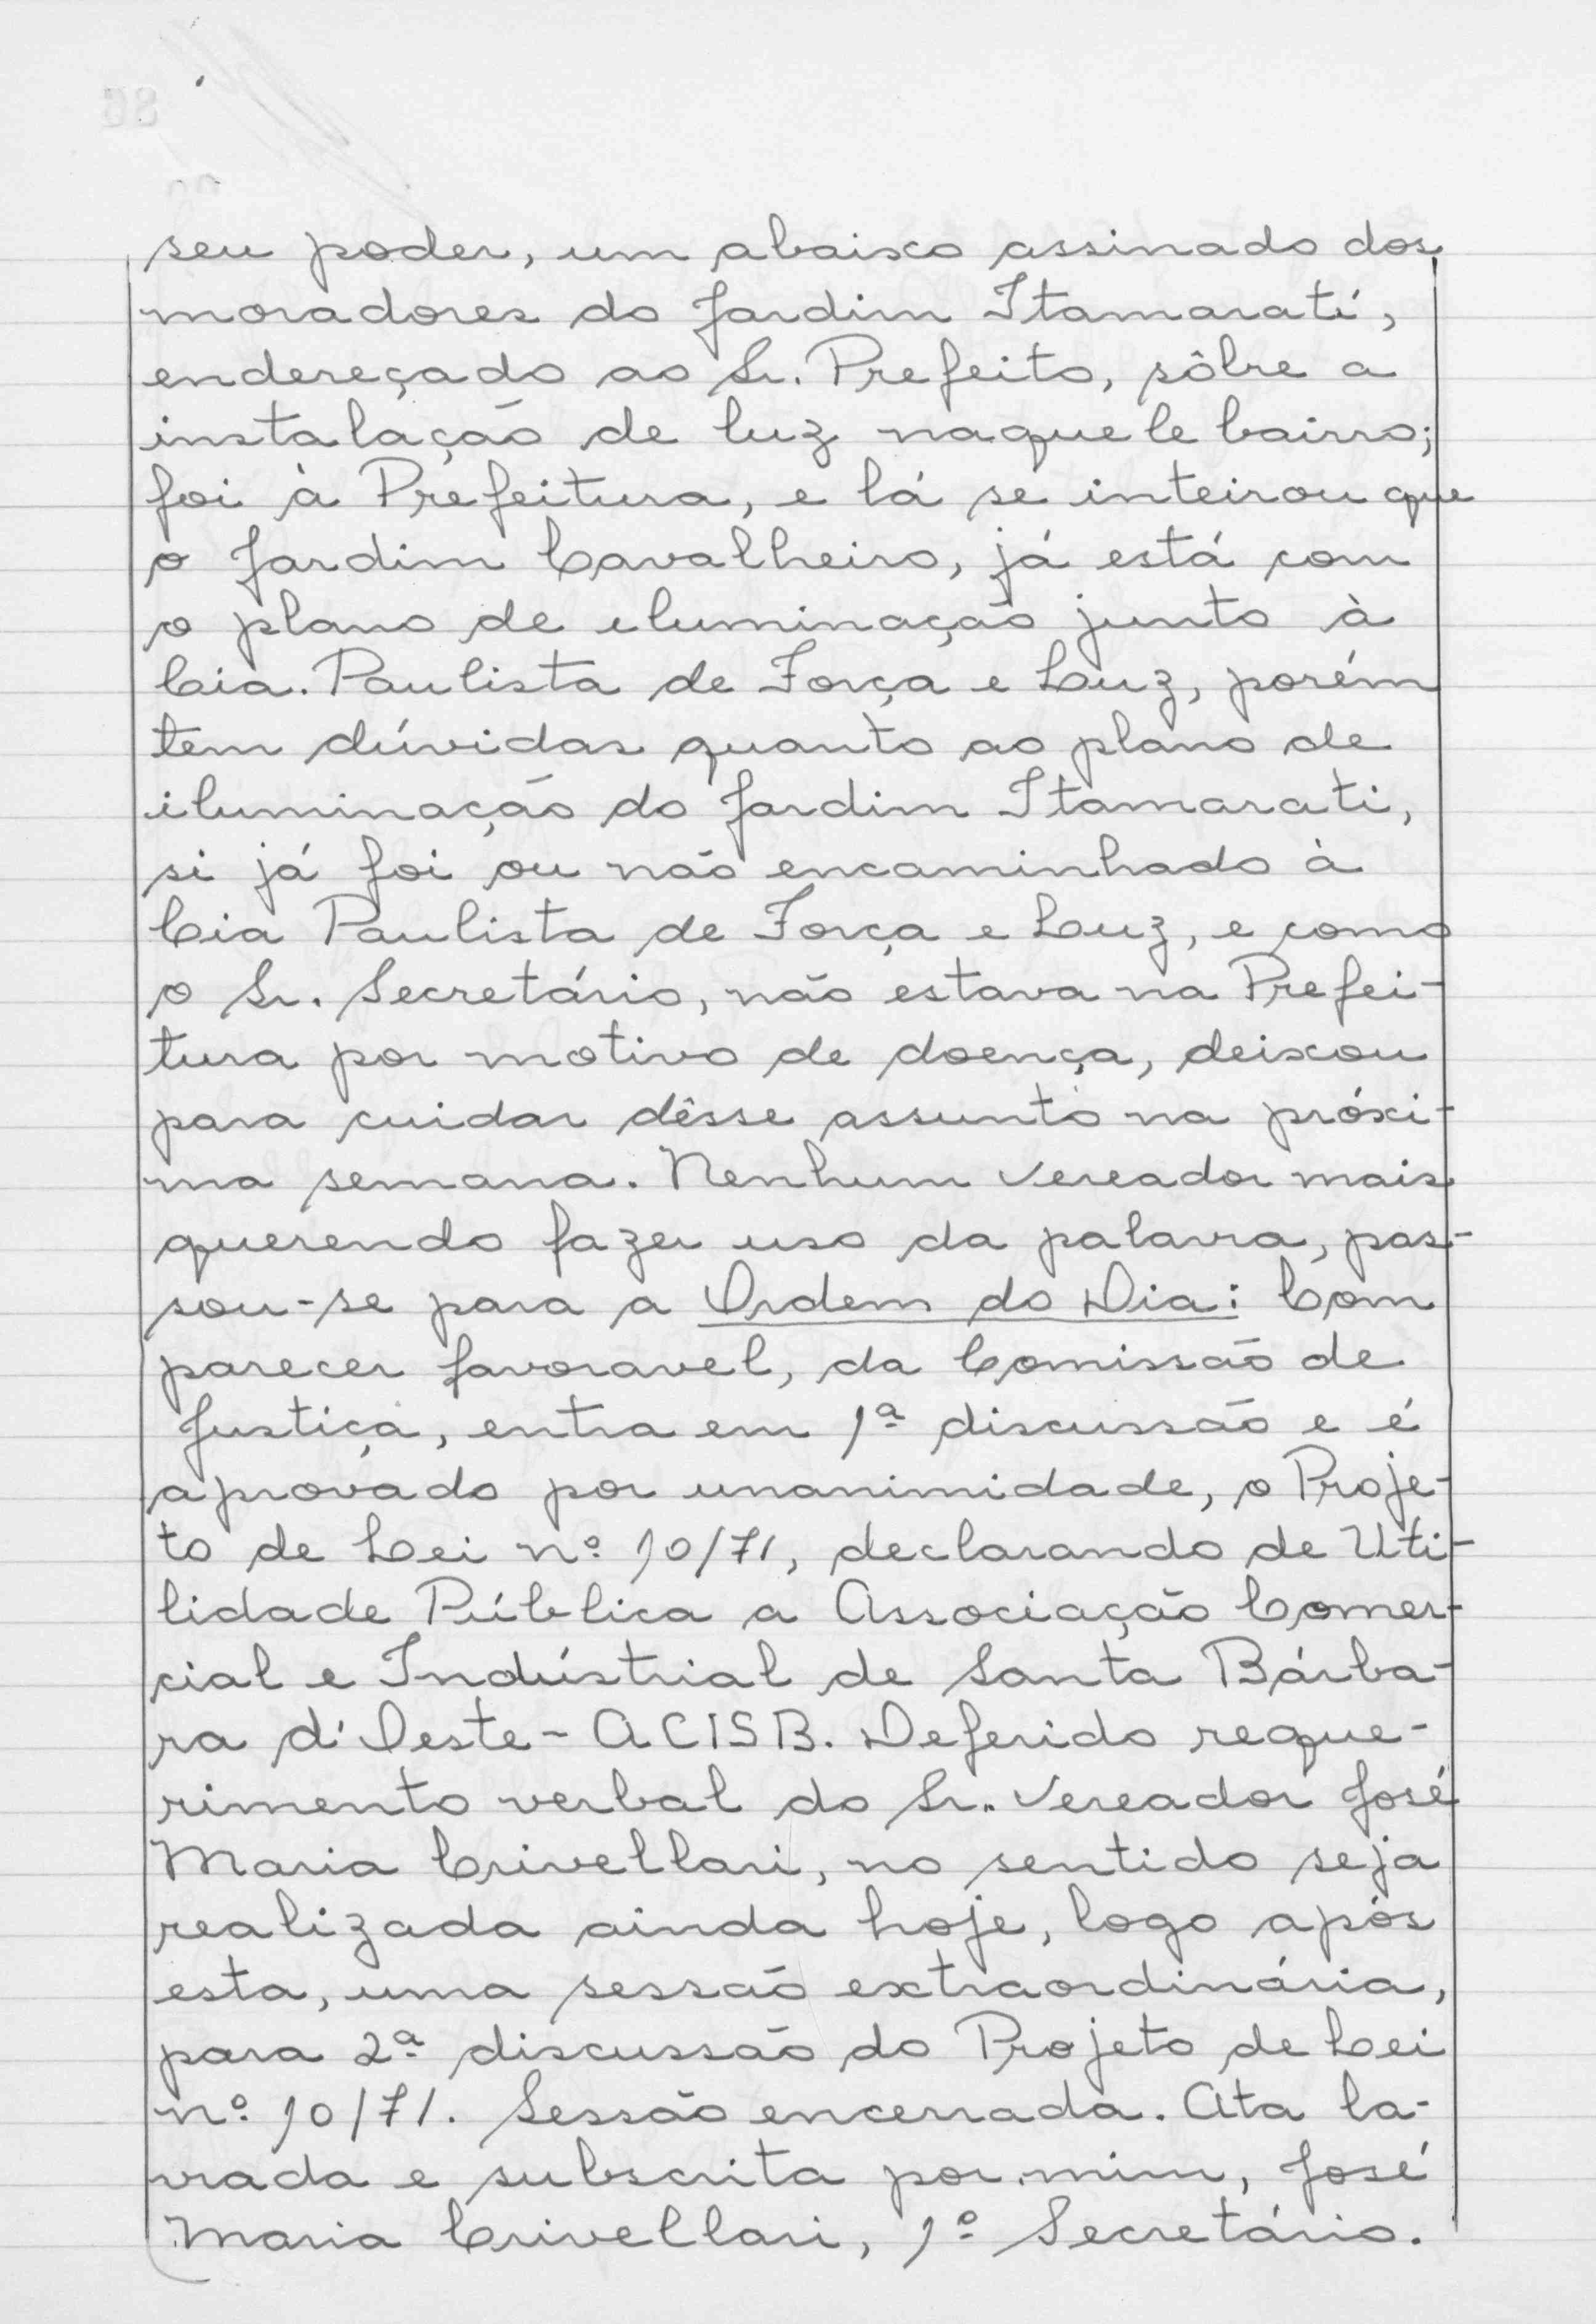 seu poder, um abaixo assinado dos
moradores do Jardim Itamaratí,
endereçado ao Sr. Prefeito, sôbre a
instalação de luz naquele bairro;
foi à Prefeitura, e lá se inteirou que
o Jardim Cavalheiro, já está com
o plano de iluminação junto à
Cia. Paulista de Força e Luz, porém
tem dúvidas quanto ao plano de
iluminação do Jardim Itamarati,
si já foi ou não encaminhado à
Cia Paulista de Força e Luz, e como
o Sr. Secretário, não estava na Prefei-
tura por motivo de doença, deixou
para cuidar dêsse assunto na próxi-
ma semana. Nenhum Vereador mais
querendo fazer uso da palavra, pas-
sou-se para a Ordem do Dia: Com
parecer favoravel, da Comissão de
Justiça, entra em 1ª discussão e é
aprovado por unanimidade, o Proje-
to de Lei nº 10/71, declarando de Uti-
lidade Pública a Associação Comer-
cial e Indústrial de Santa Bárba-
ra d'Oeste - ACISB. Deferido reque-
rimento verbal do Sr. Vereador José
Maria Crivellari, no sentido seja
realizada ainda hoje, logo após
esta, uma sessão extraordinária,
para 2ª discussão do Projeto de Lei
nº 10/71. Sessão encerrada. Ata la-
vrada e subscrita por mim, José
Maria Crivellari, 1º Secretário.